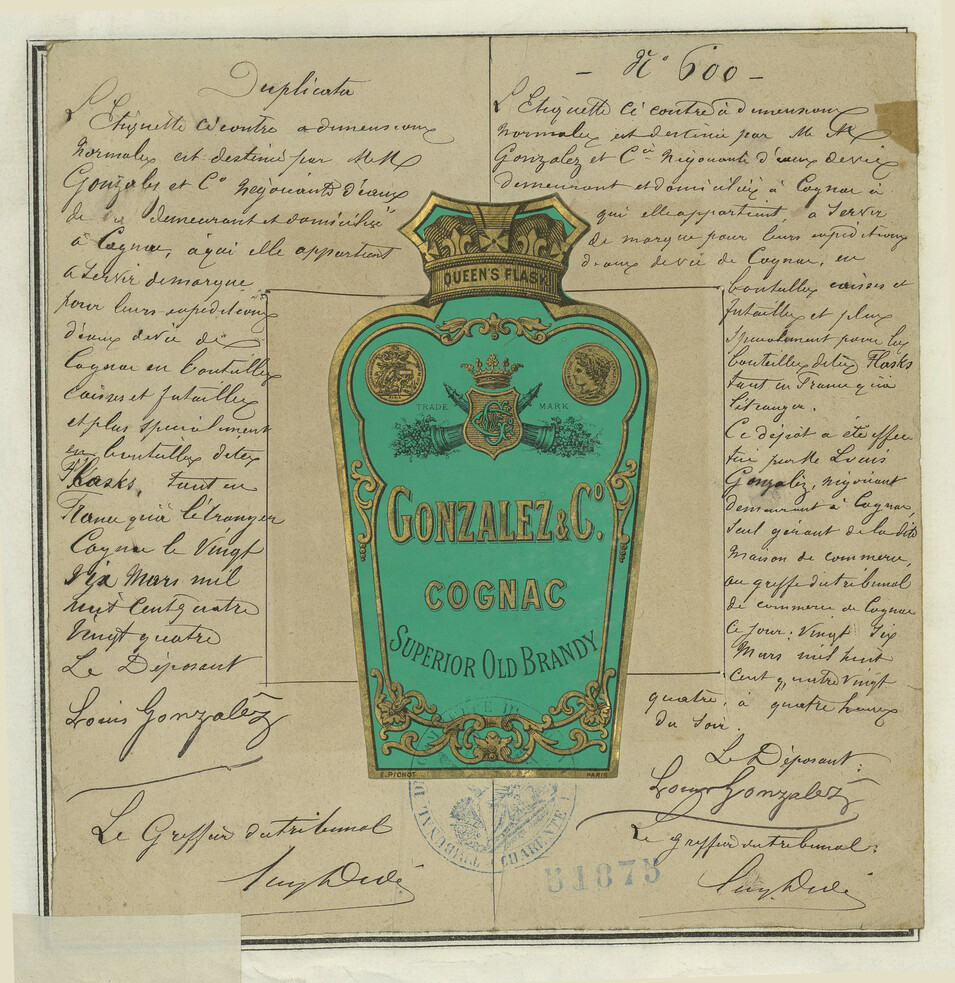 Duplicata
L'Etiquette ci contre a dimensions
Normales est destinée par MM
Gonzales et Co Négociants d'eaux
de vie demeurant et domiciliés
à Cognac, à qui elle appartient
a Servir de marque
pour leurs expéditions
d'eaux de vie de
Cognac en bouteilles
caisses et futailles
et plus spécialement
en bouteilles dites
Flasks, tant en
France qu'à l'étranger
Cognac le Vingt
Six Mars mil
huit cent quatre
Vingt quatre
Le Déposant
Louis Gonzalez
Le Greffier du tribunal
- No 600 -
L'Etiquette ci contre à dimensions
Normales est destinée par MM
Gonzalez et Cie Négociants d'eaux de vie
demeurant et domiciliés à Cognac à
qui elle appartient, a Servir
de marque pour leurs expéditions
d'eaux de vie de Cognac, en
bouteilles caisses et
futailles et plus
Spécialement pour les
bouteilles dites Flasks
tant en France qu'à
l'étranger.
Ce dépôt a été effec
tué par Mr Louis
Gonzalez, négociant
demeurant à Cognac,
Seul gérant de la dite
maison de commerce,
au greffe du tribunal
de commerce de Cognac
Ce jour: Vingt Six
Mars mil huit
cent quatre Vingt
quatre, à quatre heures
du Soir.
Le Déposant:
Louis Gonzalez
Le greffier du tribunal:
QUEEN'S FLASK
TRADE MARK
GONZALEZ & Co.
COGNAC
SUPERIOR OLD BRANDY
E. PICHOT PARIS
TRIBUNAL DE
CHARENTE
51875